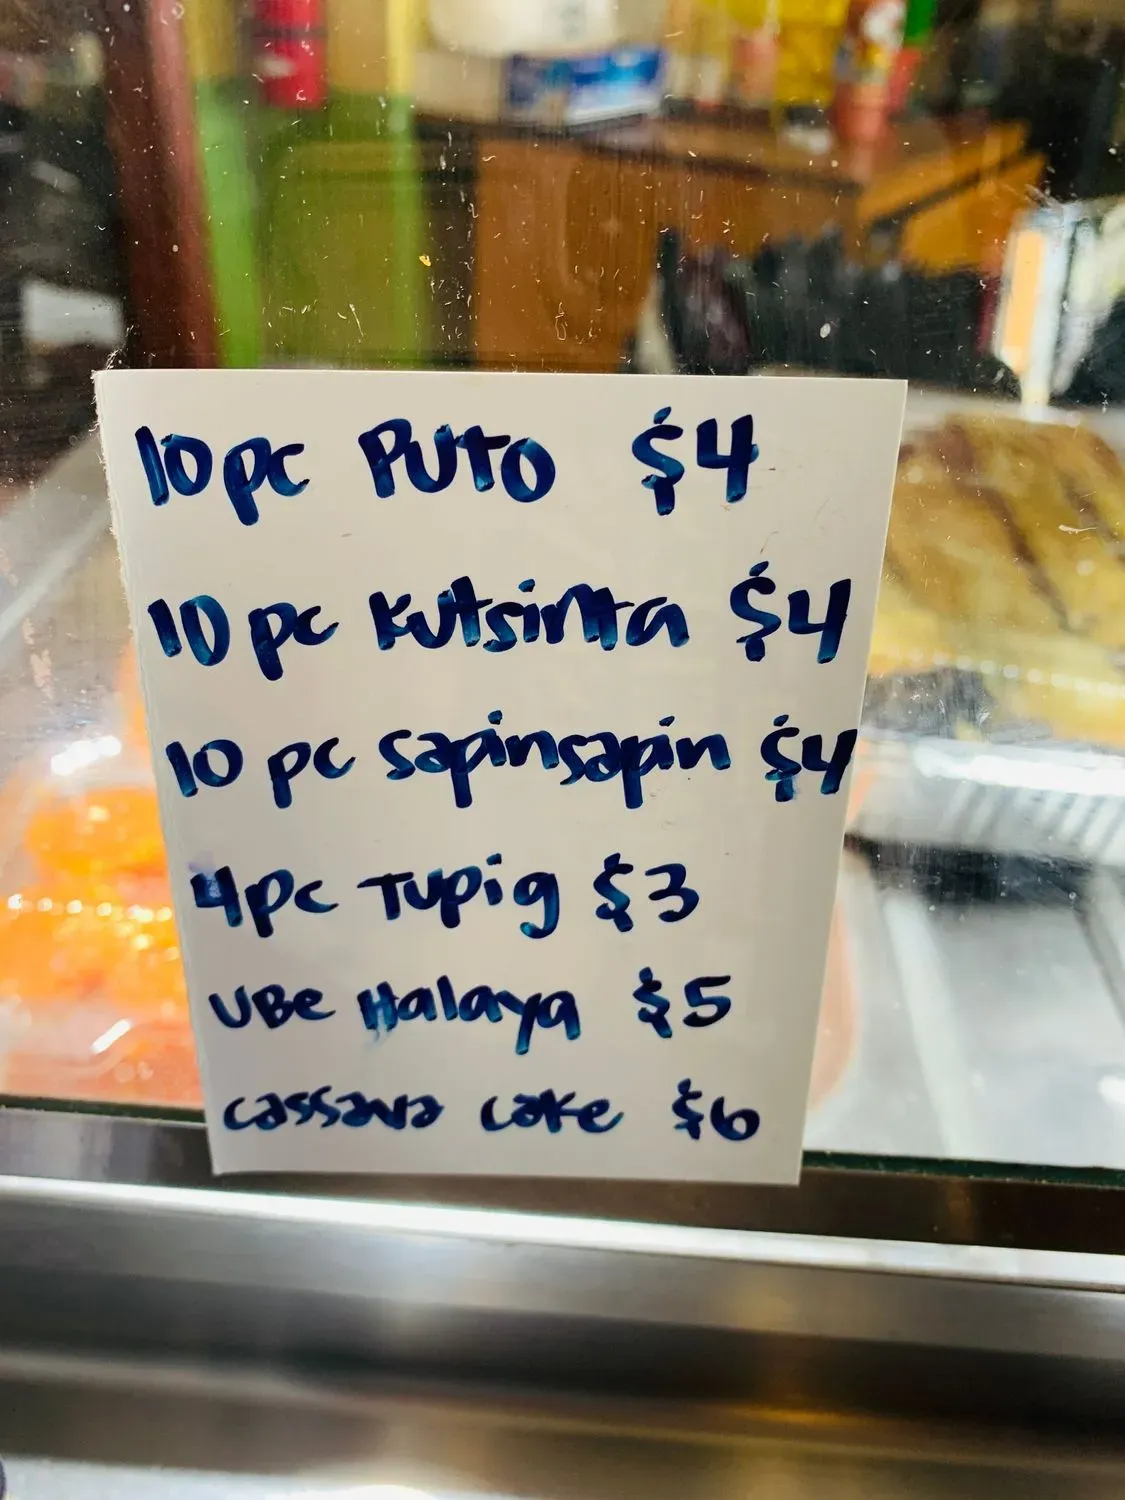 10 pc Puto $4
10 pc Kutsinta $4
10 pc Sapinsapin $4
4 pc Tupig $3
UBe Halaya $5
cassava cake $6